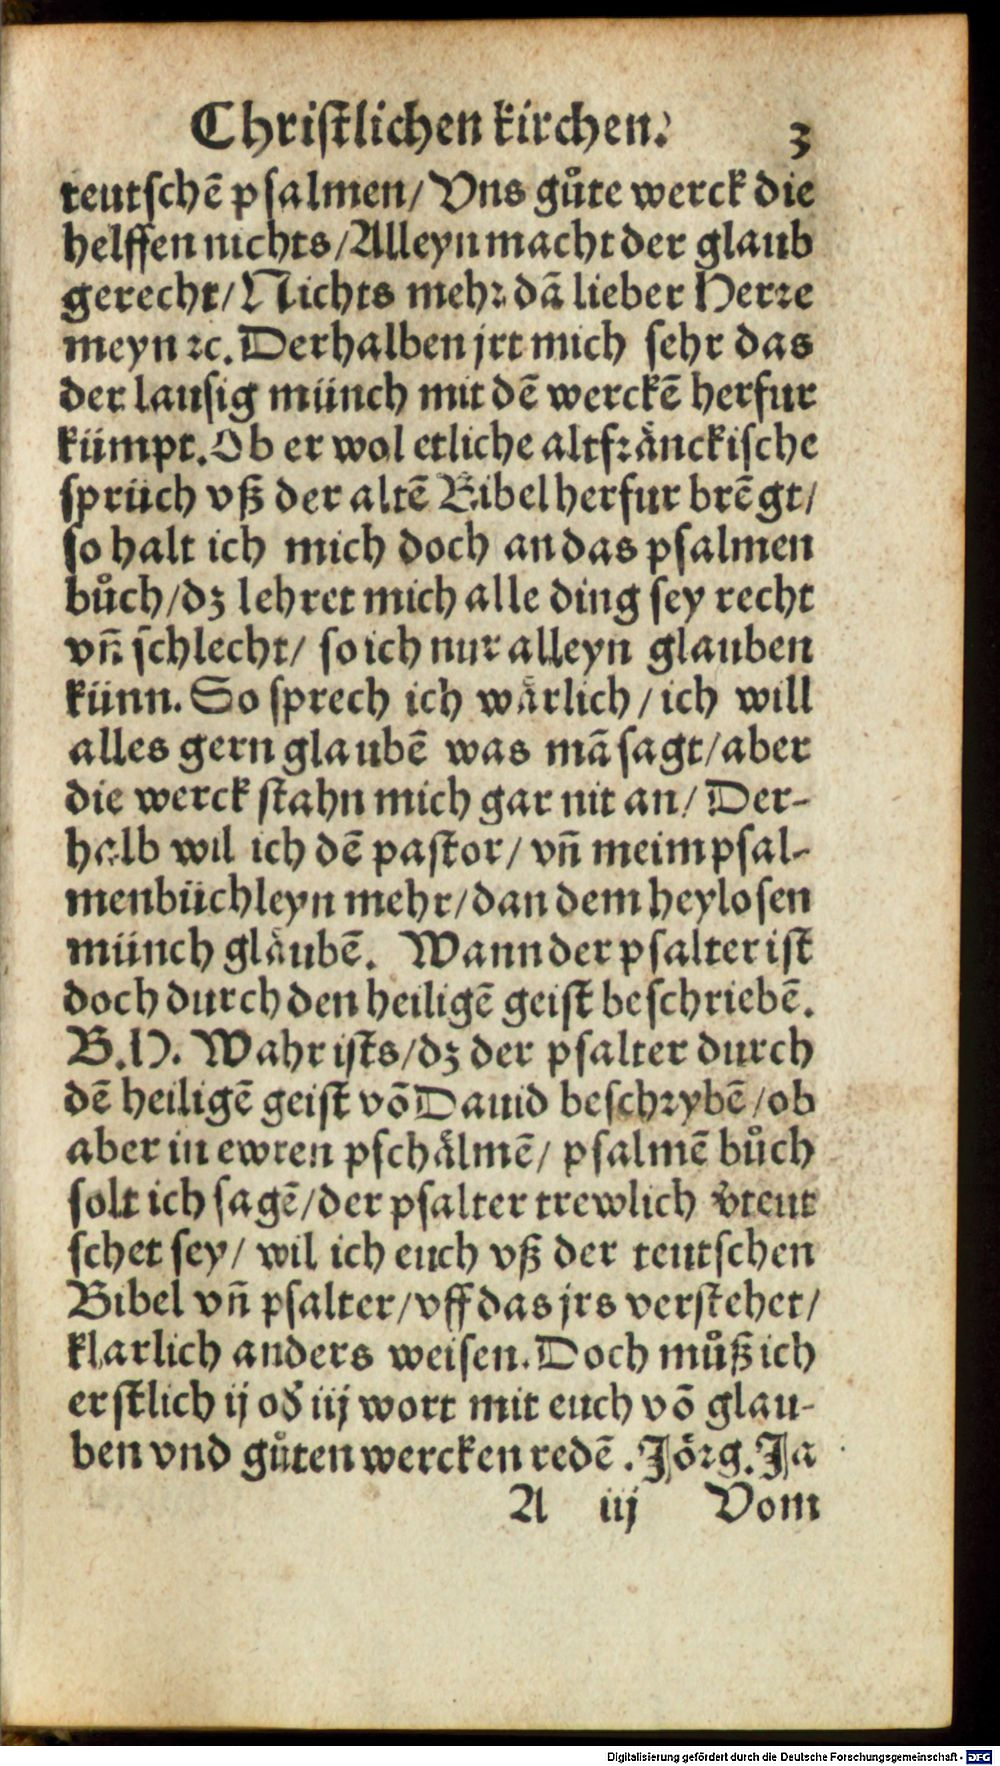 Christlichen kirchen. 3
teutschẽ psalmen/ Vns gůte werck die
helffen nichts/Alleyn macht der glaub
gerecht/Nichts mehr dã lieber Herre
meyn ꝛc. Derhalben jrt mich sehr das
der lausig münch mit dẽ werckẽ herfur
kümpt. Ob er wol etliche altfränckische
sprüch vß der altẽ Bibel herfur brẽgt/
so halt ich mich doch an das psalmen
bůch/dz lehret mich alle ding sey recht
vñ schlecht/ so ich nur alleyn glauben
künn. So sprech ich wärlich/ich will
alles gern glaubẽ was mã sagt/aber
die werck stahn mich gar nit an/ Der-
halb wil ich dẽ pastor/ vñ meim psal-
menbüchleyn mehr/dan dem heylosen
münch gläubẽ. Wann der psalter ist
doch durch den heiligẽ geist beschriebẽ.
B.H. Wahr ists/dz der psalter durch
dẽ heiligẽ geist võ Dauid beschrybẽ/ob
aber in ewren pschälmẽ/ psalmẽ bůch
solt ich sagẽ/der psalter trewlich v̈teut
schet sey/ wil ich euch vß der teutschen
Bibel vñ psalter/vff das jrs verstehet/
klarlich anders weisen. Doch můß ich
erstlich ij oď iij wort mit euch võ glau-
ben vnd gůten wercken redẽ. Jörg. Ja
A iij Vom
Digitalisierung gefördert durch die Deutsche Forschungsgemeinschaft - DFG